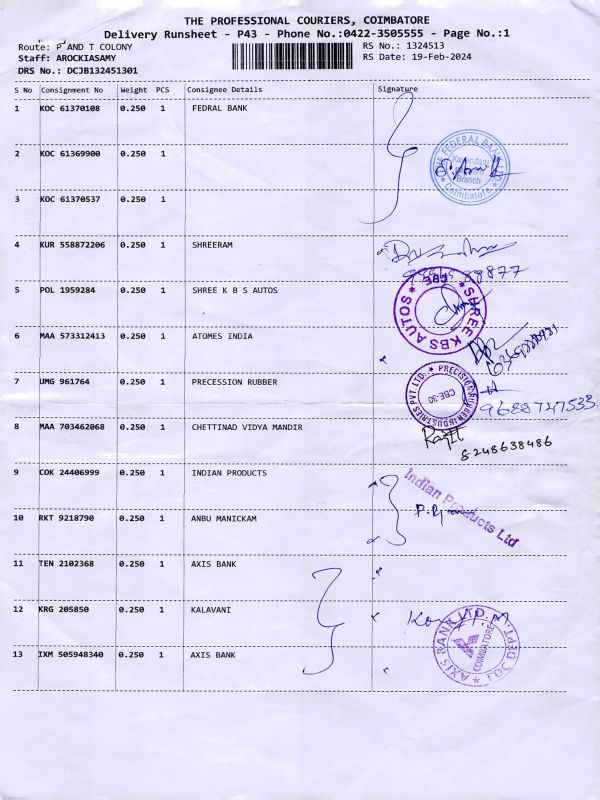 THE PROFESSIONAL COURIERS, COIMBATORE
Delivery Runsheet - P43 - Phone No.:0422-3505555 - Page No.:1
Route: P AND T COLONY
RS No.: 1324513
Staff: AROCKIASAMY
RS Date: 19-Feb-2024
DRS No.: DCJB132451301
S No Consignment No Weight PCS Consignee Details Signature
1 KOC 61370108 0.250 1 FEDRAL BANK
2 KOC 61369900 0.250 1
THE FEDERAL BANK LTD
Branch
Coimbatore
3 KOC 61370537 0.250 1
4 KUR 558872206 0.250 1 SHREERAM
5 POL 1959284 0.250 1 SHREE K B S AUTOS
SHREE KBS AUTOS
CBE
6 MAA 573312413 0.250 1 ATOMES INDIA
7 UMG 961764 0.250 1 PRECESSION RUBBER
PRECISION RUBBER INDUSTRIES PVT. LTD.
CBE-30
9688747533
8 MAA 703462068 0.250 1 CHETTINAD VIDYA MANDIR
8248638486
9 COK 24406999 0.250 1 INDIAN PRODUCTS
Indian Products Ltd
10 RKT 9218790 0.250 1 ANBU MANICKAM
11 TEN 2102368 0.250 1 AXIS BANK
12 KRG 205850 0.250 1 KALAVANI
13 IXM 505948340 0.250 1 AXIS BANK
AXIS BANK LTD. FDC DEPT.
COIMBATORE